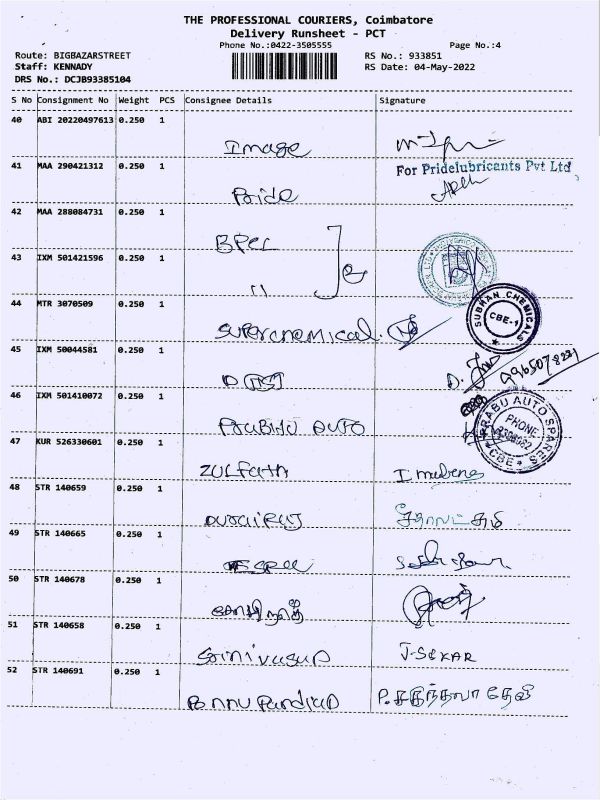 THE PROFESSIONAL COURIERS, Coimbatore
Delivery Runsheet - PCT
Phone No.:0422-3505555 Page No.:4
Route: BIGBAZARSTREET RS No.: 933851
Staff: KENNADY RS Date: 04-May-2022
DRS No.: DCJB93385104
S No Consignment No Weight PCS Consignee Details Signature
40 ABI 20220497613 0.250 1
Image
41 MAA 290421312 0.250 1
For Pridelubricants Pvt Ltd
Pride
42 MAA 288084731 0.250 1
43 IXM 501421596 0.250 1
"
44 MTR 3070509 0.250 1
SUBHAN CHEMICALS
CBE-1
Superchemical
45 IXM 50044581 0.250 1
D.
46 IXM 501410072 0.250 1
PRABU AUTO SPARES
PHONE
CBE
Auto
47 KUR 526330601 0.250 1
Zulfath
48 STR 140659 0.250 1
49 STR 140665 0.250 1
50 STR 140678 0.250 1
51 STR 140658 0.250 1
Srinivasan J-SEKAR
52 STR 140691 0.250 1
Ponnu Pandian P. சகுந்தலா தேவி